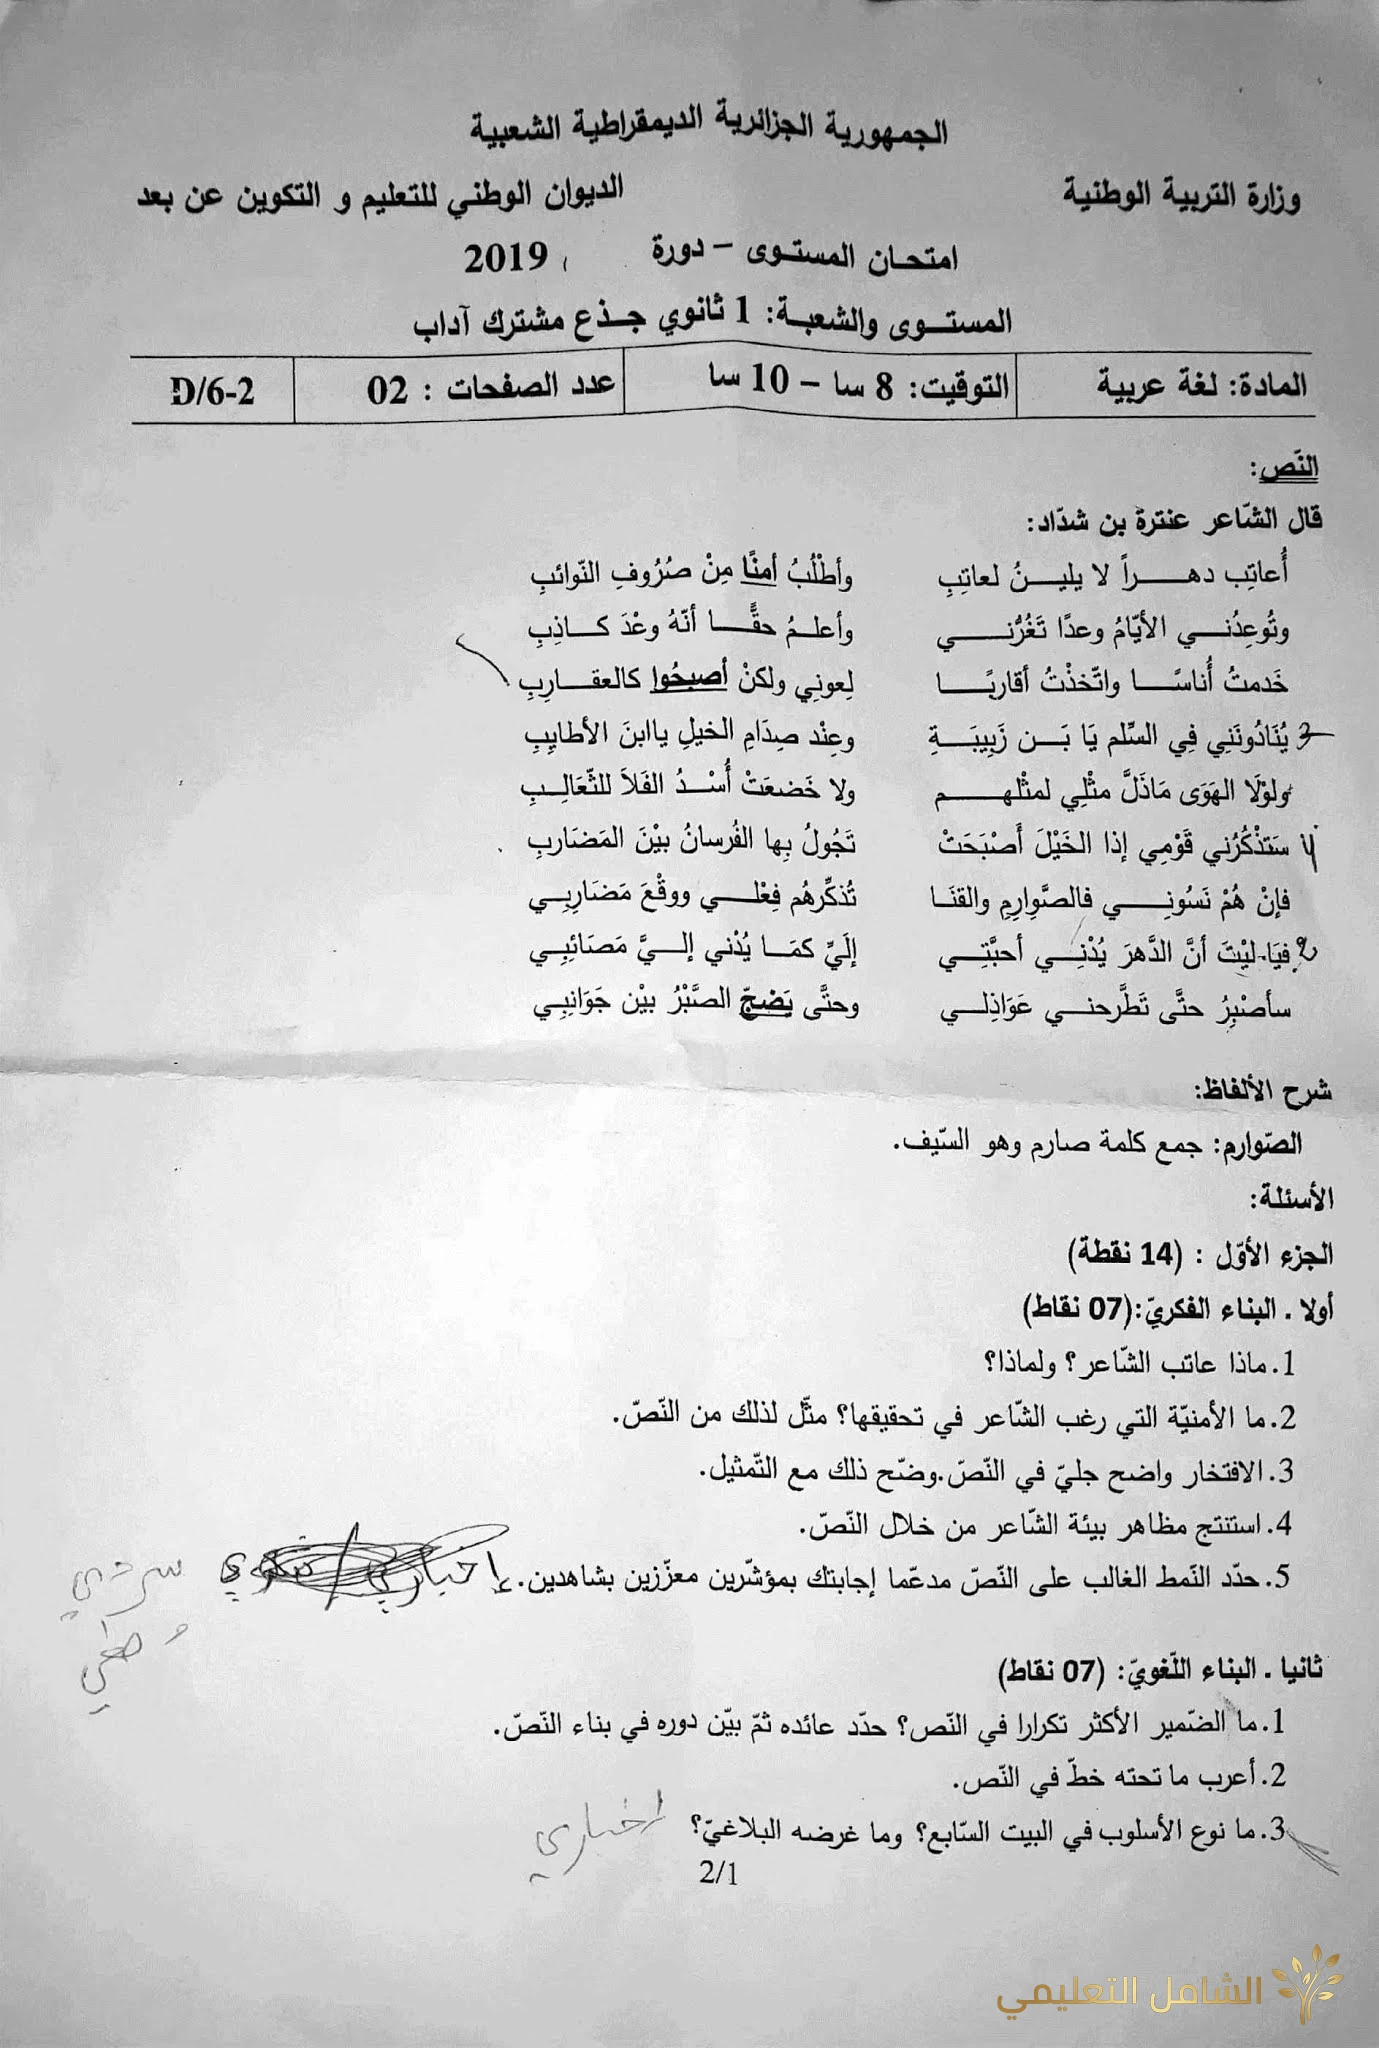 الجمهورية الجزائرية الديمقراطية الشعبية
وزارة التربية الوطنية الديوان الوطني للتعليم و التكوين عن بعد
امتحان المستوى – دورة 2019
المستوى والشعبة: 1 ثانوي جذع مشترك آداب
المادة: لغة عربية التوقيت: 8 سا – 10 سا عدد الصفحات : 02 D/6-2
النّص:
قال الشّاعر عنترة بن شدّاد:
أُعاتِب دهراً لا يلينُ لعاتِبِ وأطْلُبُ أمنًا مِنْ صُرُوفِ النّوائبِ
وتُوعِدُني الأيّامُ وعدًا تَغُرُّني وأعلمُ حقًّا أنّهُ وعْدَ كاذِبِ
خَدمتُ أُناسًا واتّخذْتُ أقاربًا لِعونِي ولكنْ أصبحُوا كالعقارِبِ
3 يُنَادُونَنِي فِي السِّلم يَا بَن زَبِيبَةِ وعِنْد صِدَامِ الخيلِ ياابنَ الأطايِبِ
ولوْلَا الهَوَى مَاذَلَّ مثْلِي لمثْلهم ولا خَضعَتْ أُسْدُ الفَلاَ للثّعَالِبِ
4 سَتَذْكُرُني قَوْمِي إذا الخَيْلَ أَصْبَحَتْ تَجُولُ بِها الفُرسانُ بيْنَ المَضَاربِ
فإنْ هُمْ نَسُونِي فالصَّوارِمِ والقنَا تُذكِّرهُم فِعْلي ووقْعَ مَضَارِبِي
2 فيَا ليْتَ أنَّ الدَّهرَ يُدْنِي أحبَّتِي إلَيَّ كمَا يُدْني إليَّ مَصَائِبِي
سأصْبِرُ حتَّى تَطَّرحني عَوَاذِلي وحتَّى يَضجّ الصَّبْرُ بيْن جَوَانِبِي
شرح الألفاظ:
الصّوارم: جمع كلمة صارم وهو السّيف.
الأسئلة:
الجزء الأوّل : (14 نقطة)
أولا . البناء الفكريّ:(07 نقاط)
1. ماذا عاتب الشّاعر؟ ولماذا؟
2. ما الأمنيّة التي رغب الشّاعر في تحقيقها؟ مثّل لذلك من النّصّ.
3. الافتخار واضح جليّ في النّصّ.وضّح ذلك مع التّمثيل.
4. استنتج مظاهر بيئة الشّاعر من خلال النّصّ.
5. حدّد النّمط الغالب على النّصّ مدعّما إجابتك بمؤشّرين معزّزين بشاهدين. إخباري سردي
ثانيا . البناء اللّغويّ: (07 نقاط)
1. ما الضّمير الأكثر تكرارا في النّص؟ حدّد عائده ثمّ بيّن دوره في بناء النّصّ.
2. أعرب ما تحته خطّ في النّص.
3. ما نوع الأسلوب في البيت السّابع؟ وما غرضه البلاغيّ؟ إخباري
2/1
الشامل التعليمي